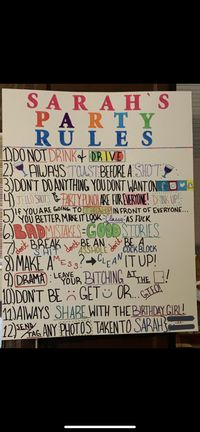 SARAH'S
PARTY
RULES
1) DO NOT DRINK & DRIVE
2) ALWAYS TOAST BEFORE A SHOT!
3) DON'T DO ANYTHING YOU DON'T WANT ON
4) JELLO SHOTS & PARTY PUNCH ARE FOR EVERYONE! DRINK UP!
5) IF YOU ARE GOING TO IN FRONT OF EVERYONE...
YOU BETTER MAKE IT LOOK Classy AS FUCK
6) BAD MISTAKES = GOOD STORIES
7) don't BREAK SHIT don't BE AN ASSHOLE don't BE A COCKBLOCK
8) MAKE A MESS? → CLEAN IT UP!
9) DRAMA: LEAVE YOUR BITCHING AT THE !
10) DON'T BE GET OR... GTFO!
11) ALWAYS SHARE WITH THE BIRTHDAY GIRL!
12) SEND/TAG ANY PHOTOS TAKEN TO SARAH